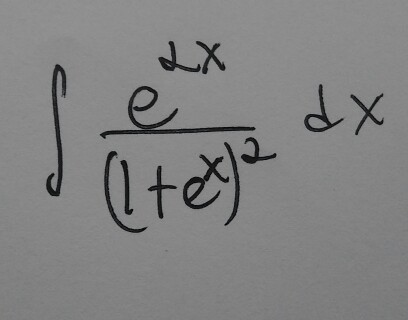 ∫ e^{2x} / (1+e^x)^2 dx